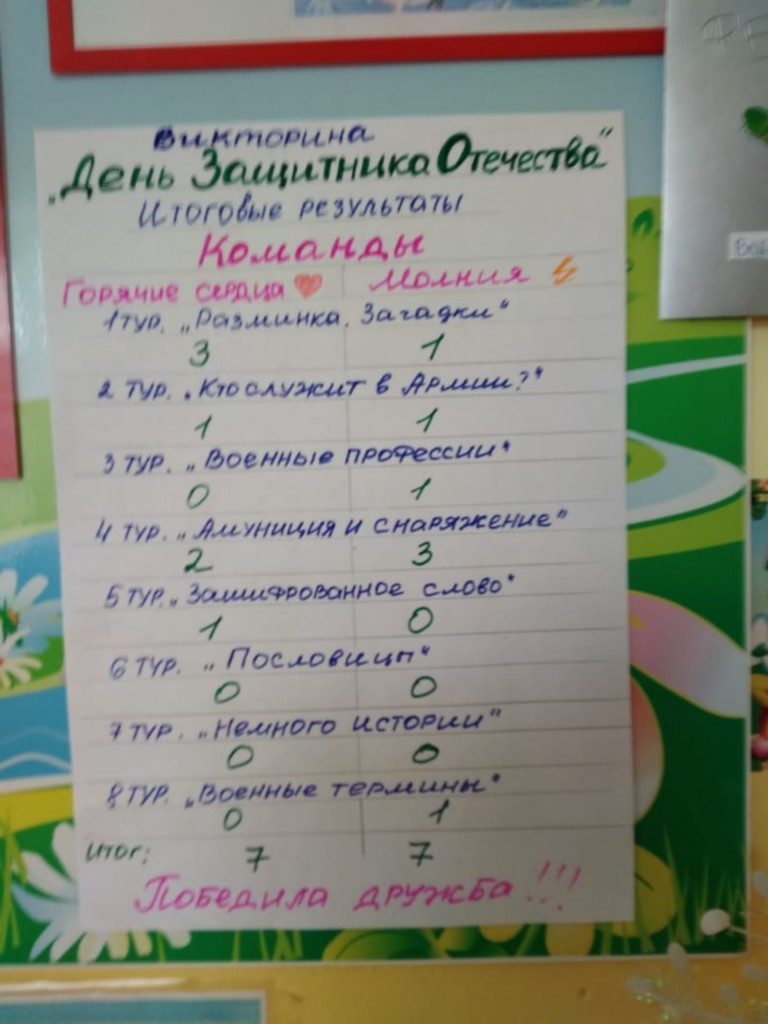 Викторина
„День Защитника Отечества"
Итоговые результаты
Команды
Горячие сердца Молния
1 тур. „Разминка. Загадки"
3 1
2 тур. „Кто служит в Армии?"
1 1
3 тур. „Военные профессии"
0 1
4 тур. „Амуниция и снаряжение"
2 3
5 тур. „Зашифрованное слово"
1 0
6 тур. „Пословицы"
0 0
7 тур. „Немного истории"
0 0
8 тур. „Военные термины"
0 1
Итог: 7 7
Победила дружба!!!